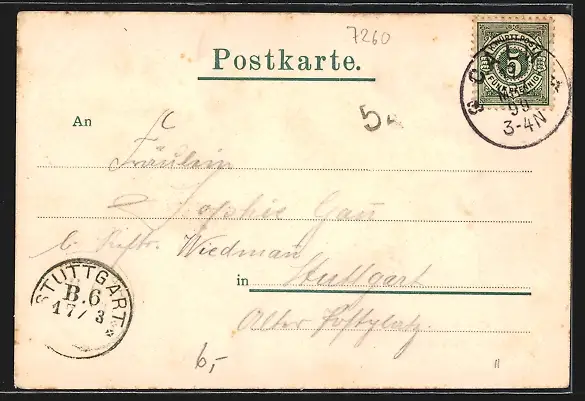 7260
Postkarte.
K. WÜRTT. POST
5
FÜNF PFENNIG
CALW
99
3-4N
5
An
Fräulein
Sophie Gau
Wiedman
in Stuttgart
Alter Postplatz.
STUTTGART
B.6
17/3
6,-